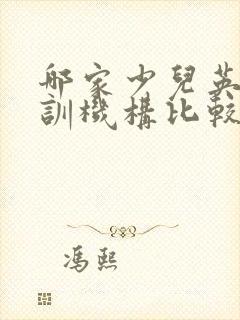 邮家少兒英
訓機構比較
馮熙